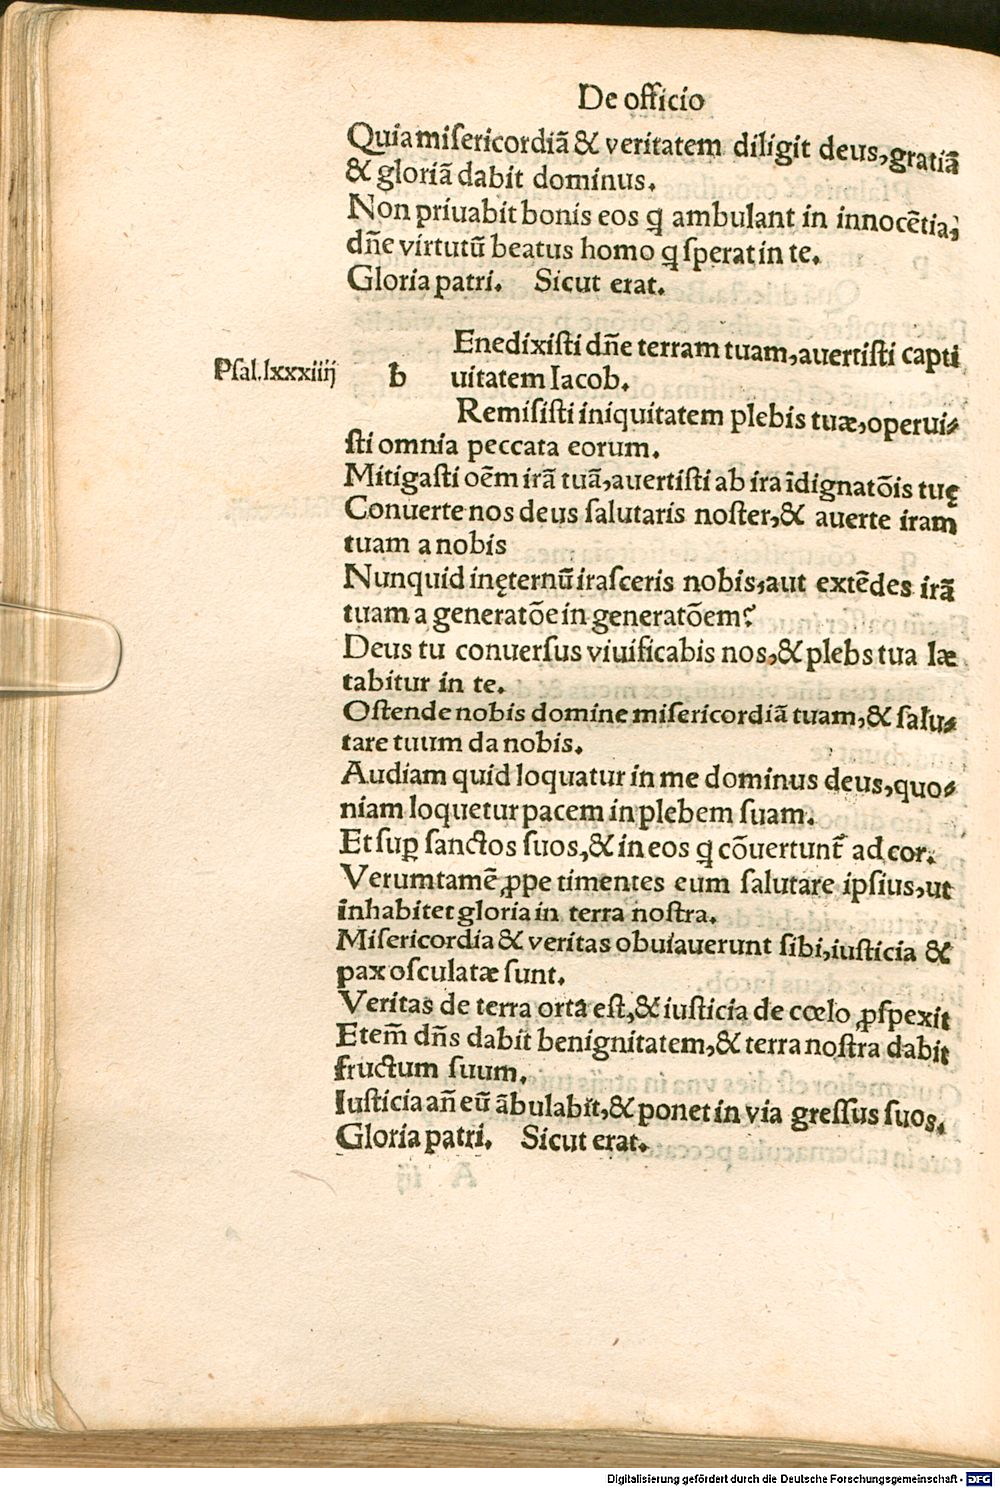 De officio
Quia miſericordiã & veritatem diligit deus, gratiã
& gloriã dabit dominus.
Non priuabit bonis eos ꝗ ambulant in innocẽtia,
dñe virtutũ beatus homo ꝗ ſperat in te.
Gloria patri. Sicut erat.
Enedixiſti dñe terram tuam, auertiſti capti
Pſal. lxxxiiij b uitatem Iacob.
Remiſiſti iniquitatem plebis tuæ, operui⸗
ſti omnia peccata eorum.
Mitigaſti oẽm irã tuã, auertiſti ab ira ĩdignatõis tuę
Conuerte nos deus ſalutaris noſter, & auerte iram
tuam a nobis
Nunquid inęternũ iraſceris nobis, aut extẽdes irã
tuam a generatõe in generatõem?
Deus tu conuerſus viuificabis nos, & plebs tua læ
tabitur in te.
Oſtende nobis domine miſericordiã tuam, & ſalu⸗
tare tuum da nobis.
Audiam quid loquatur in me dominus deus, quo⸗
niam loquetur pacem in plebem ſuam.
Et ſuꝑ ſanctos ſuos, & in eos ꝗ cõuertunt̃ ad cor.
Verumtamẽ ꝓpe timentes eum ſalutare ipſius, ut
inhabitet gloria in terra noſtra.
Miſericordia & veritas obuiauerunt ſibi, iuſticia &
pax oſculatæ ſunt.
Veritas de terra orta eſt, & iuſticia de cœlo ꝓſpexit
Etem̃ dñs dabit benignitatem, & terra noſtra dabit
fructum ſuum.
Iuſticia añ eũ ãbulabit, & ponet in via greſſus ſuos.
Gloria patri. Sicut erat.
Digitalisierung gefördert durch die Deutsche Forschungsgemeinschaft - DFG